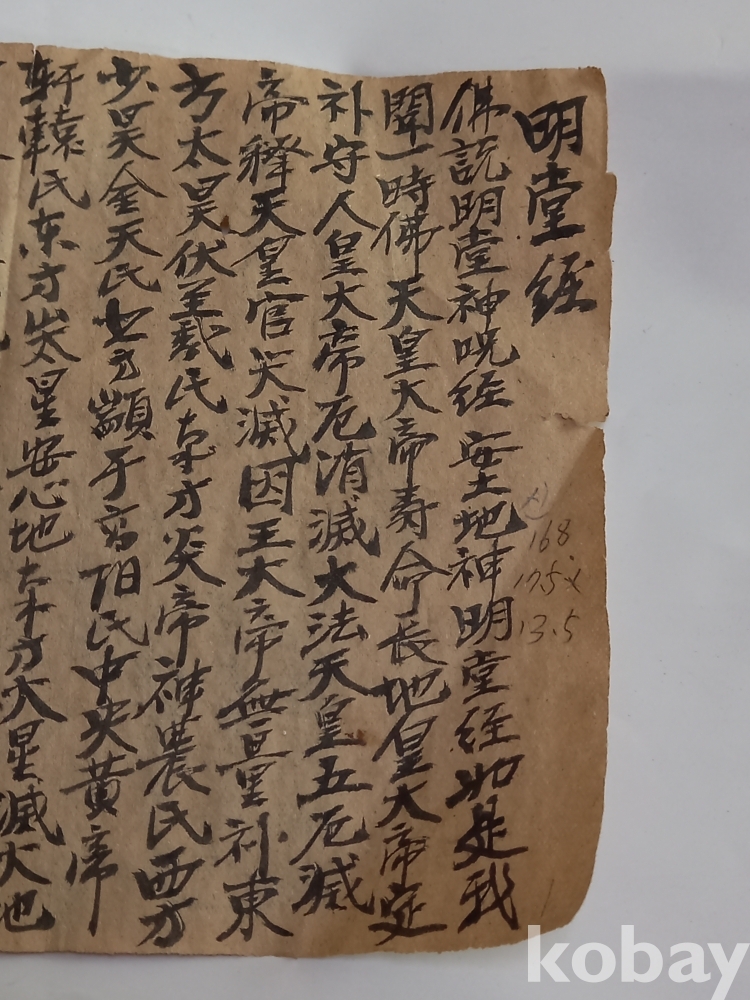 明堂經
佛說明堂神呪經 安土地神明堂經 如是我
聞一時佛天皇大帝寿命長地皇大帝定
补守人皇大帝厄消滅大法天皇五厄滅
帝釋天皇官災滅因王大帝無量补東
方太昊伏羲氏南方炎帝神農氏西方
少昊金天氏北方顓于高阳氏中央黃帝
轩轅氏东方災星安心地南方大星滅大地
168
17.5×
13.5
kobay